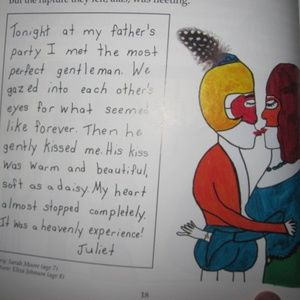 but the rapture they felt, alas, was fleeting.
Tonight at my father's
party I met the most
perfect gentleman. We
gazed into each other's
eyes for what seemed
like forever. Then he
gently kissed me. His kiss
was warm and beautiful,
soft as a daisy. My heart
almost stopped completely.
It was a heavenly experience!
Juliet
Sarah Moore (age 7)
Eliza Johnson (age 8)
18